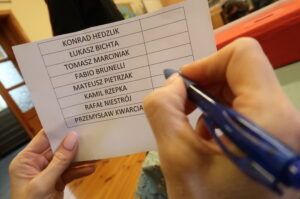 KONRAD HEDZLIK
ŁUKASZ BICHTA
TOMASZ MARCINIAK
FABIO BRUNELLI
MATEUSZ PIETRZAK
KAMIL RZEPKA
RAFAŁ NIESTRÓJ
PRZEMYSŁAW KWARCIA